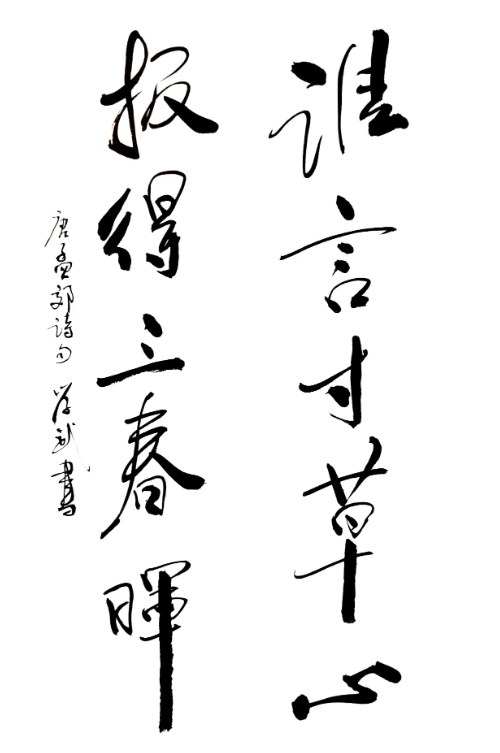 谁言寸草心
报得三春晖
唐孟郊诗句 学武書